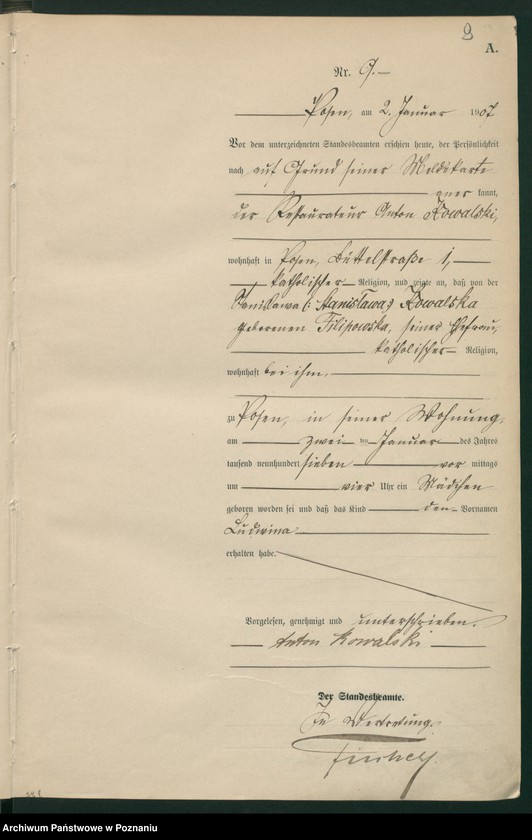 9
A.
Nr. 9.
Posen, am 2. Januar 1907
Vor dem unterzeichneten Standesbeamten erschien heute, der Persönlichkeit
nach auf Grund seiner Meldekarte
aner kannt,
der Restaurateur Anton Kowalski,
wohnhaft in Posen, Büttelstraße 1,
katholischer Religion, und zeigte an, daß von der
Stanislawa (: Stanisława :) Kowalska
geborenen Filipowska, seiner Ehefrau,
katholischer Religion,
wohnhaft bei ihm,
zu Posen, in seiner Wohnung,
am zwei ten Januar des Jahres
tausend neunhundert sieben vor mittags
um vier Uhr ein Mädchen
geboren worden sei und daß das Kind den Vornamen
Ludwina
erhalten habe.
Vorgelesen, genehmigt und unterschrieben.
Anton Kowalski
Der Standesbeamte.
In Vertretung.
Archiwum Państwowe w Poznaniu